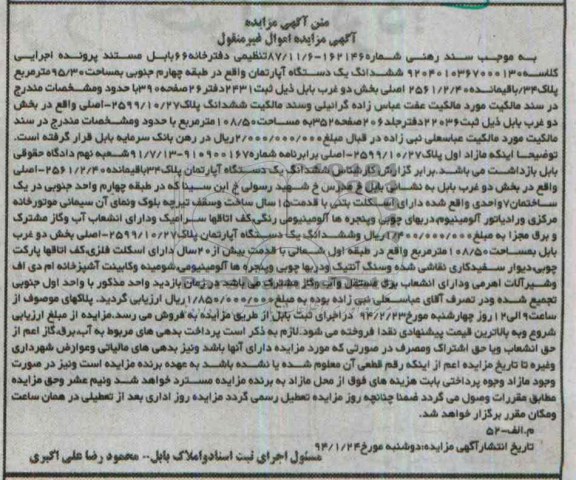 متن آگهی مزایده
آگهی مزایده اموال غیرمنقول
به موجب سند رهنی شماره ۱۶۲۱۴۶-۸۷/۱۱/۶ تنظیمی دفترخانه ۶۶ بابل مستند پرونده اجرایی
کلاسه ۹۲۰۴۰۱۰۳۶۷۰۰۰۱۳۰ ششدانگ یک دستگاه آپارتمان واقع در طبقه چهارم جنوبی بمساحت ۹۵/۳۰ مترمربع
پلاک ۳۴/باقیمانده ۲۵۶۱/۲/۴۰ اصلی بخش دو غرب بابل ذیل ثبت ۲۴۳۱ دفتر ۲۶ صفحه ۳۹۰ با حدود ومشخصات مندرج
در سند مالکیت مورد مالکیت عفت عباس زاده گرائیلی وسند مالکیت ششدانگ پلاک ۲۵۹۹/۱۰/۲۷-اصلی واقع در بخش
دو غرب بابل ذیل ثبت ۲۲۰۳۶ دفتر جلد ۲۰۶ صفحه ۳۵۲ به مساحت ۱۰۸/۵۰ مترمربع با حدود ومشخصات مندرج در سند
مالکیت مورد مالکیت عباسعلی نبی زاده در قبال مبلغ ۲/۰۰۰/۰۰۰/۰۰۰ ریال در رهن بانک سرمایه بابل قرار گرفته است.
توضیحا اینکه مازاد اول پلاک ۲۵۹۹/۱۰/۲۷-اصلی برابر نامه شماره ۹۱۰۹۰۰۱۶۷-۹۱/۷/۱۳ شعبه نهم دادگاه حقوقی
بابل بازداشت می باشد.برابر گزارش کارشناس ششدانگ یک دستگاه آپارتمان پلاک ۳۴/باقیمانده ۲۵۶۱/۲/۴۰-اصلی
واقع در بخش دو غرب بابل به نشانی بابل خ مدرس خ شهید رسولی خ ابن سینا که در طبقه چهارم واحد جنوبی در یک
ساختمان ۷ واحدی واقع شده دارای اسکلت بتنی با قدمت ۱۵ سال ساخت وسقف تیرچه بلوک ونمای آن سیمانی موتورخانه
مرکزی ورادیاتور آلومینیوم،دربهای چوبی وپنجره ها آلومینیومی رنگی،کف اتاقها سرامیک ودارای انشعاب آب وگاز مشترک
و برق مجزا به مبلغ ۱/۴۰۰/۰۰۰/۰۰۰ ریال وششدانگ یک دستگاه آپارتمان پلاک ۲۵۹۹/۱۰/۲۷-اصلی بخش دو غرب
بابل بمساحت ۱۰۸/۵۰ مترمربع واقع در طبقه اول شمالی با قدمت بیش از ۲۰ سال دارای اسکلت فلزی،کف اتاقها پارکت
چوبی،دیوار سفیدکاری نقاشی شده وسنگ آنتیک ودربها چوبی وپنجره ها آلومینیومی،شومینه وکابینت آشپزخانه ام دی اف
وشیرآلات اهرمی ودارای انشعاب برق مستقل وآب وگاز مشترک می باشد در زمان بازدید واحد مذکور با واحد اول جنوبی
تجمیع شده ودر تصرف آقای عباسعلی نبی زاده بوده به مبلغ ۱/۸۵۰/۰۰۰/۰۰۰ ریال ارزیابی گردید. پلاکهای موصوف از
ساعت ۹ الی ۱۲ روز چهارشنبه مورخ ۹۴/۲/۲۳ در اجرای ثبت بابل از طریق مزایده به فروش می رسد.مزایده از مبلغ ارزیابی
شروع وبه بالاترین قیمت پیشنهادی نقدا فروخته می شود.لازم به ذکر است پرداخت بدهی های مربوط به آب،برق،گاز اعم از
حق انشعاب ویا حق اشتراک ومصرف در صورتی که مورد مزایده دارای آنها باشد ونیز بدهی های مالیاتی وعوارض شهرداری
وغیره تا تاریخ مزایده اعم از اینکه رقم قطعی آن معلوم شده یا نشده باشد به عهده برنده مزایده است ونیز در صورت
وجود مازاد وجوه پرداختی بابت هزینه های فوق از محل مازاد به برنده مزایده مسترد خواهد شد ونیم عشر وحق مزایده
مطابق مقررات وصول می گردد ضمنا چنانچه روز مزایده تعطیل رسمی گردد مزایده روز اداری بعد از تعطیلی در همان ساعت
ومکان مقرر برگزار خواهد شد.
م.الف-۵۲
تاریخ انتشار آگهی مزایده:دوشنبه مورخ ۹۴/۱/۲۴
مسئول اجرای ثبت اسناد واملاک بابل-- محمود رضا علی اکبری